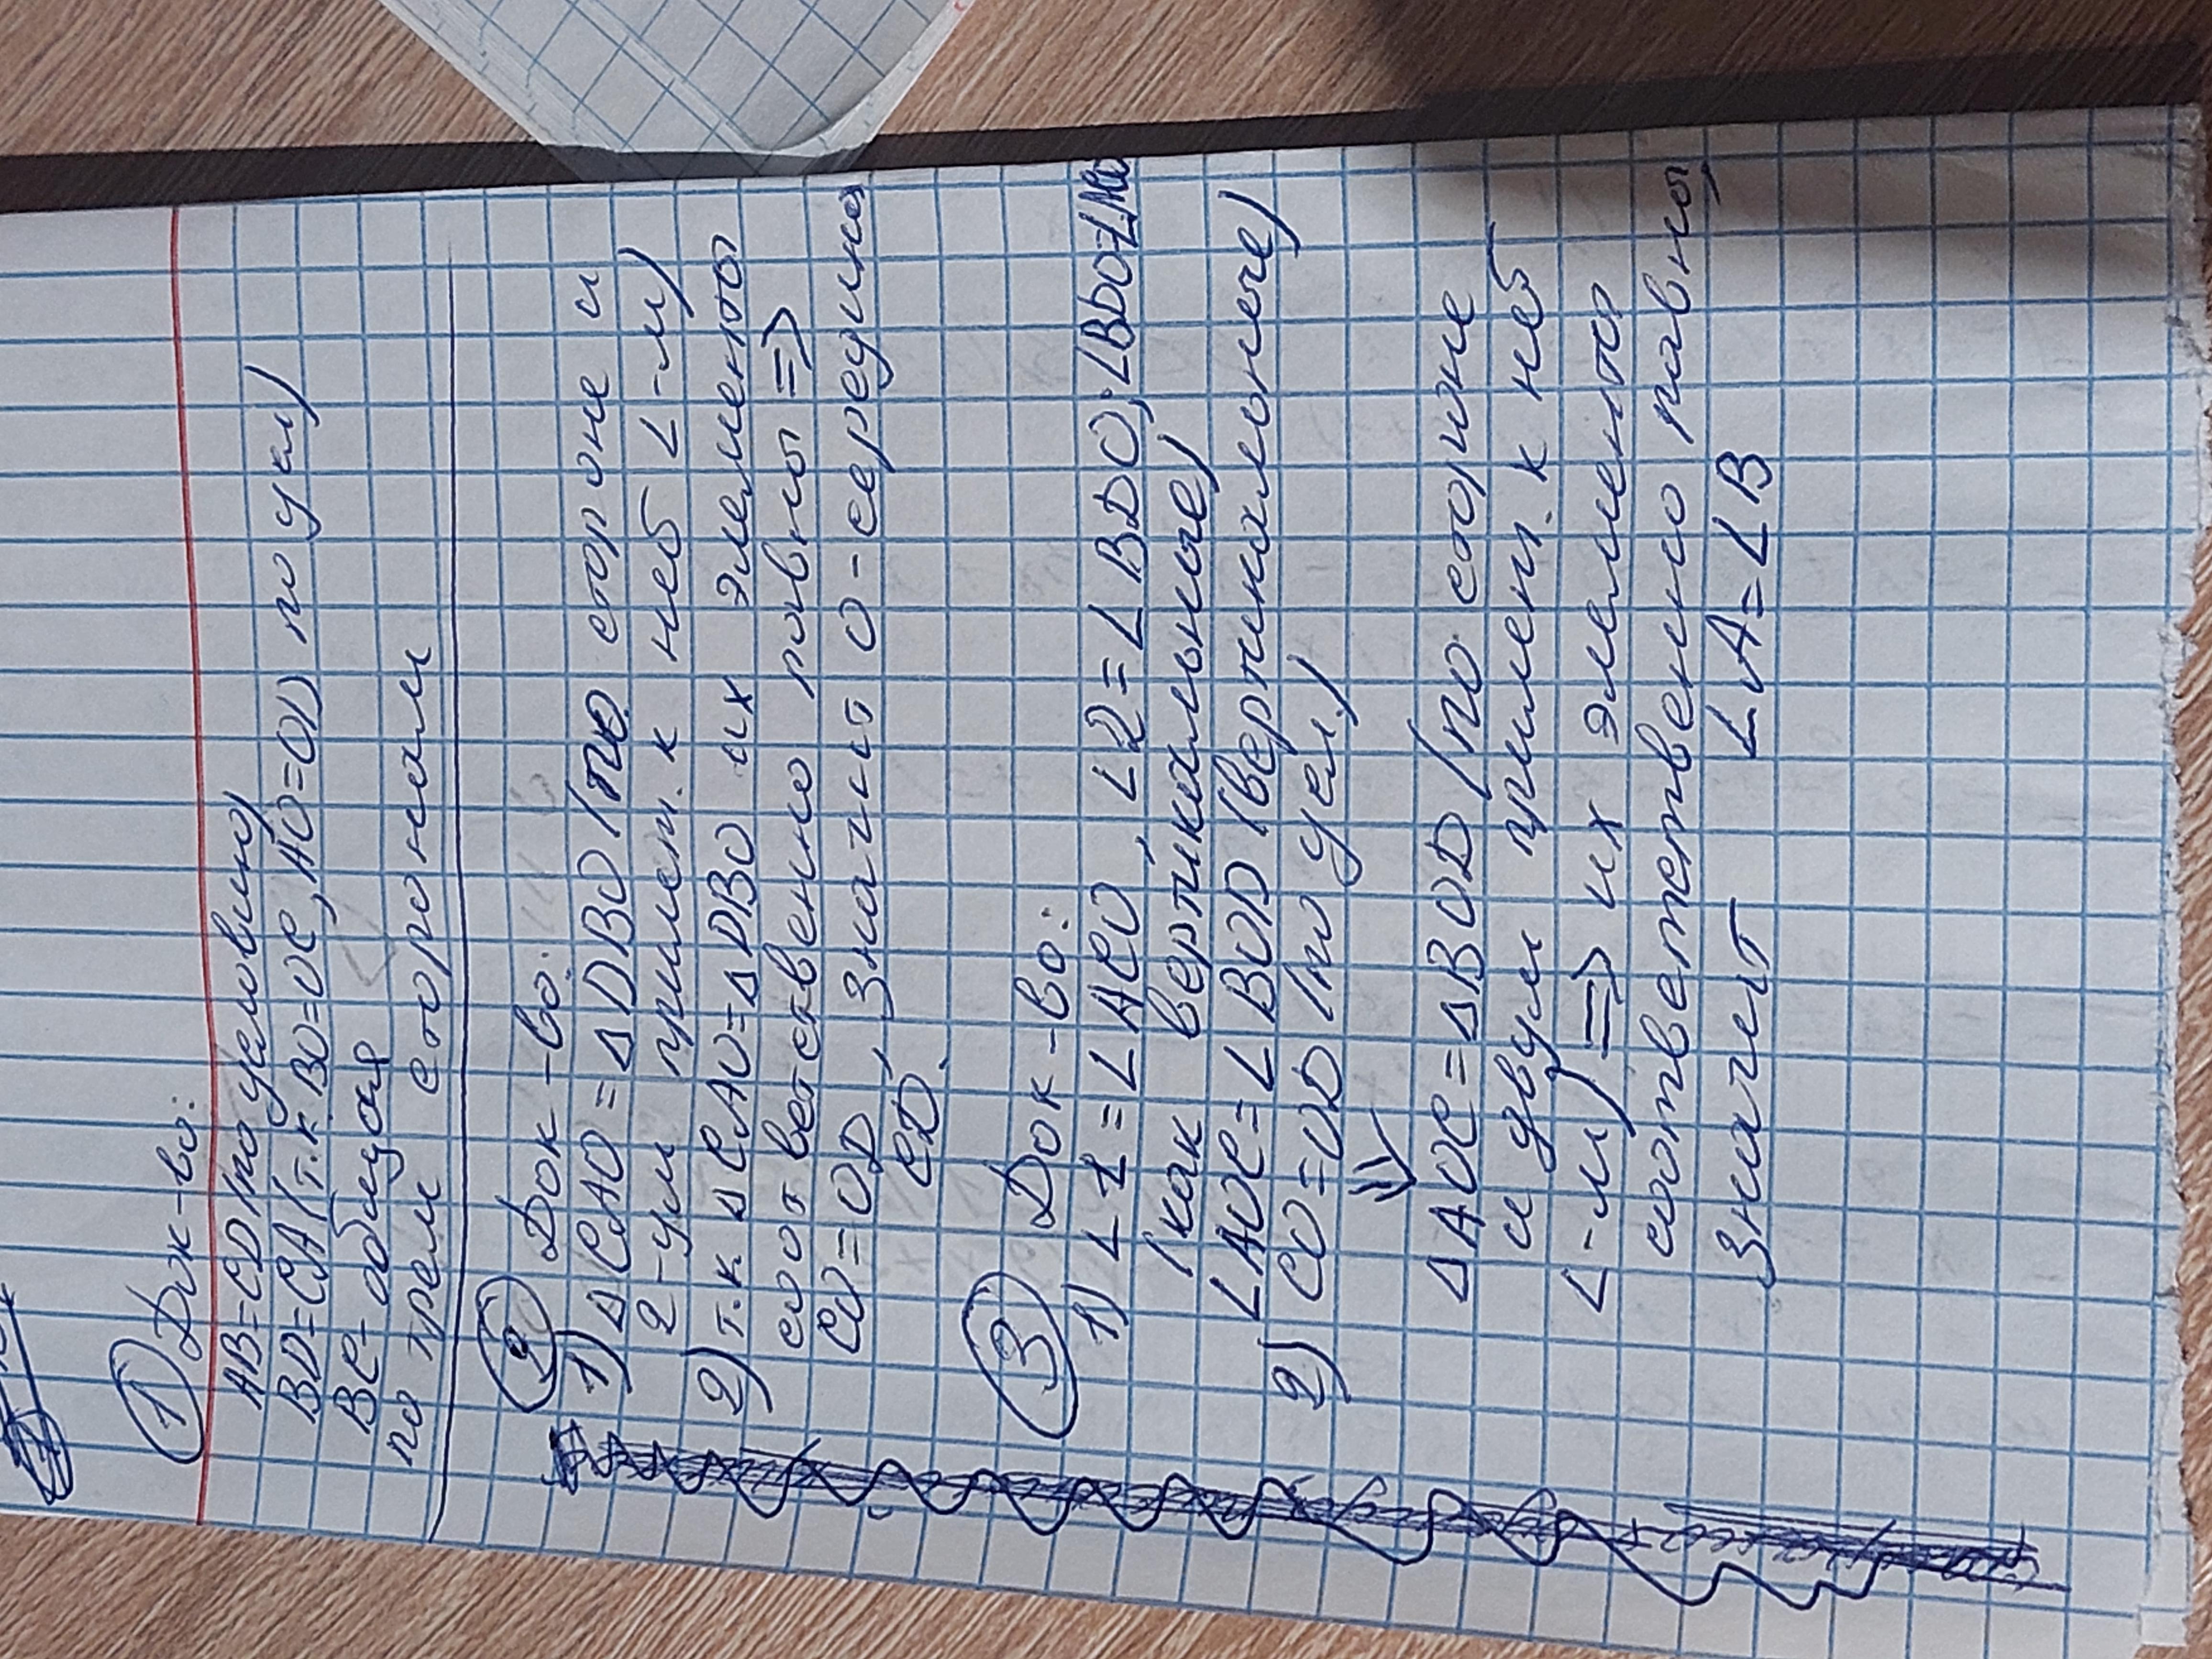 ① Док-во:
AB=CD (по условию)
BD=CA (т.к. BO=OC, AO=OD по усл)
BC- общая
по трем сторонам
② Док-во:
1) Δ CAO = Δ DBO (по стороне и
2-ум прилеж. к ней ∠-м)
2) т.к. Δ CAO=Δ DBO их элементы
соответственно равны =>
CO=OD, значит O-середина
CD.
③ Док-во:
1) ∠1=∠ACO, ∠2=∠BDO; ∠BDO=
(как вертикальные)
∠AOC=∠BOD (вертикальные)
2) CO=OD (по усл.)
⇓
Δ AOC=Δ BOD (по стороне
и двум прилеж. к ней
∠-м) => их элементы
соответственно равны,
значит ∠A=∠B